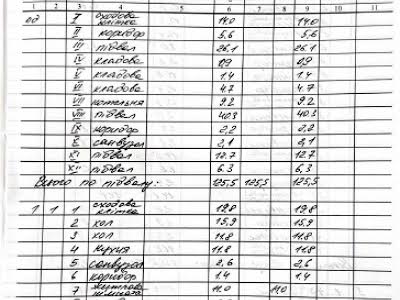 1 2 3 4 5 6 7 8 9 10 11
од I сходова клітка 14.0 14.0
II коридор 5,6 5,6
III підвал 26.1 26.1
IV кладова 0,9 0,9
V кладова 1.4 1.4
VI кладова 4.7 4.7
VII котельня 9.2 9.2
VIII підвал 40.3 40.3
IX коридор 2,2 2,2
X санвузол 2,1 2,1
XI підвал 12.7 12.7
XII підвал 6.3 6.3
Всього по підвалу: 125,5 125,5 125,5
1 1 1 сходова клітка 19.8 19.8
2 хол 15,9 15,9
3 хол 11.8 11.8
4 кухня 11.8 11.8
5 санвузол 2,6 2,6
6 коридор 1.4 1.4
7 житлова кімната 11.0 11.0